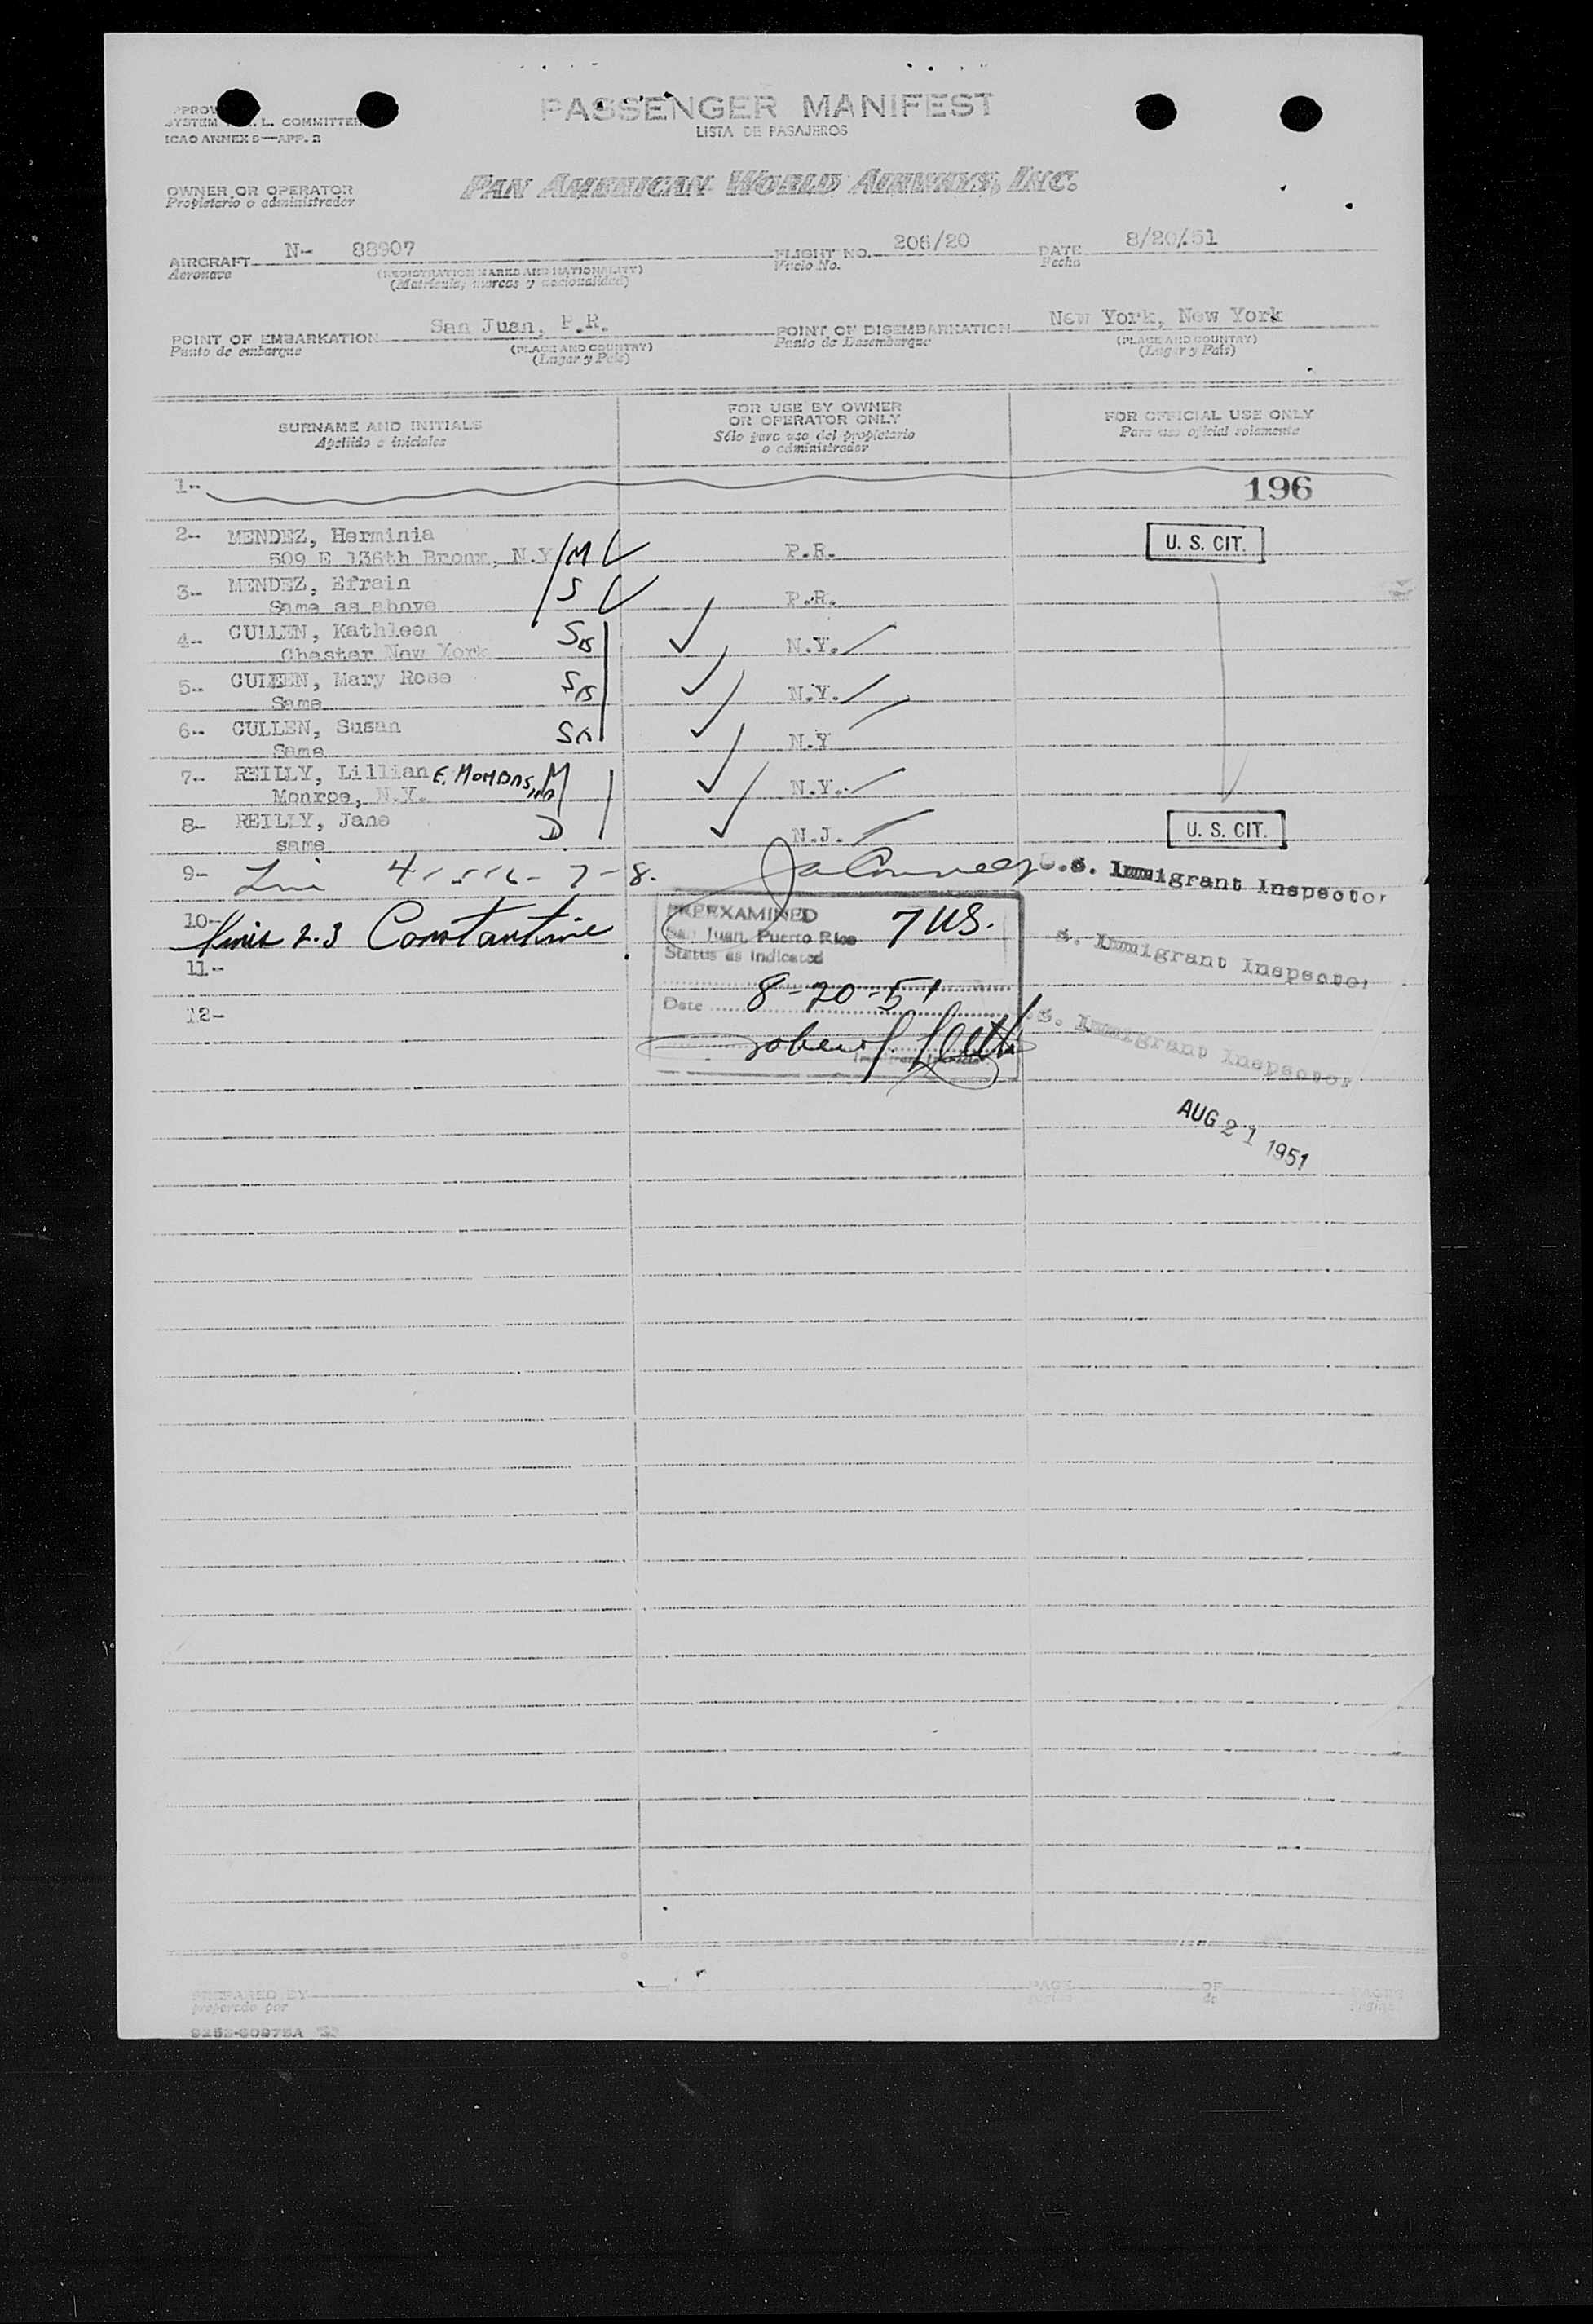 SYSTEM L. COMMITTEE
ICAO ANNEX 9—APP. 2
PASSENGER MANIFEST
LISTA DE PASAJEROS
OWNER OR OPERATOR
Propietario o administrador
PAN AMERICAN WORLD AIRWAYS, INC.
AIRCRAFT N- 88907 FLIGHT NO. 206/20 DATE 8/20/51
Aeronave (REGISTRATION MARKS AND NATIONALITY) Vuelo No. Fecha
(Matrícula, marcas y nacionalidad)
POINT OF EMBARKATION San Juan, P.R. POINT OF DISEMBARKATION New York, New York
Punto de embarque (PLACE AND COUNTRY) Punto de Desembarque (PLACE AND COUNTRY)
(Lugar y País) (Lugar y País)
SURNAME AND INITIALS FOR USE BY OWNER OR OPERATOR ONLY FOR OFFICIAL USE ONLY
Apellido e iniciales Sólo para uso del propietario o administrador Para uso oficial solamente
1-- 196
2-- MENDEZ, Herminia
509 E 136th Bronx, N.Y M P.R. U. S. CIT.
3-- MENDEZ, Efrain S
Same as above P.R.
4-- CULLEN, Kathleen S
Chester New York N.Y.
5-- CULLEN, Mary Rose S
Same N.Y.
6-- CULLEN, Susan S
Same N.Y
7-- REILLY, Lillian E. M
Monroe, N.Y. N.Y.
8- REILLY, Jane D U. S. CIT.
same N.J.
9- 4-5-6-7-8. U.S. Immigrant Inspector
10- 2.3 Constantine
PREEXAMINED 7 US.
San Juan, Puerto Rico
Status as indicated
S. Immigrant Inspector
11-
Date 8-20-51
12- S. Immigrant Inspector
AUG 21 1951
PREPARED BY PAGE OF
preparado por de